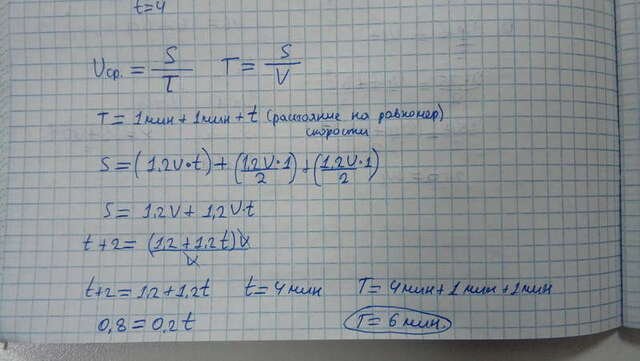 t=4
Vср. = S/T T = S/V
T = 1мин + 1мин + t (расстояние на равномер)
скорости
S = (1,2V·t) + (1,2V·1/2) + (1,2V·1/2)
S = 1,2V + 1,2Vt
t+2 = (1,2+1,2t)V/V
t+2 = 1,2+1,2t t = 4мин T = 4мин + 1мин + 1мин
0,8 = 0,2t T = 6 мин.